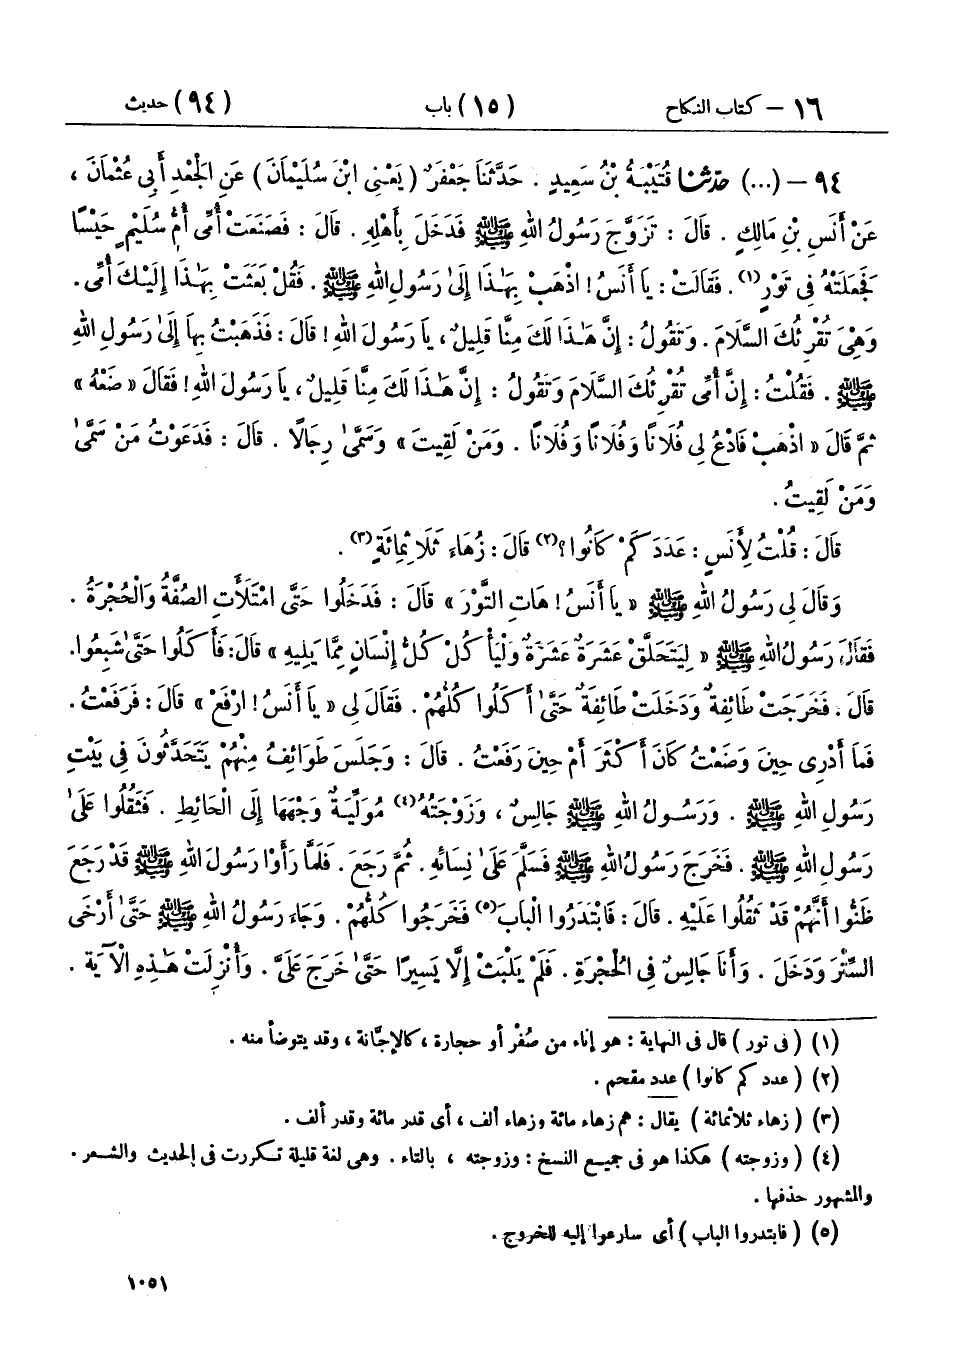 ١٦ – كتاب النكاح (١٥) باب (٩٤) حديث
٩٤ – (...) حدثنا قُتَيْبَةُ بْنُ سَعِيدٍ . حَدَّثَنَا جَعْفَرٌ (يَعْنِي ابْنَ سُلَيْمَانَ) عَنِ الْجَعْدِ أَبِي عُثْمَانَ ،
عَنْ أَنَسِ بْنِ مَالِكٍ . قَالَ : تَزَوَّجَ رَسُولُ اللهِ ﷺ فَدَخَلَ بِأَهْلِهِ . قَالَ : فَصَنَعَتْ أُمِّي أُمُّ سُلَيْمٍ حَيْسًا
فَجَعَلَتْهُ فِي تَوْرٍ(١) . فَقَالَتْ : يَا أَنَسُ ! اذْهَبْ بِهَٰذَا إِلَىٰ رَسُولِ اللهِ ﷺ . فَقُلْ بَعَثَتْ بِهَٰذَا إِلَيْكَ أُمِّي .
وَهِيَ تُقْرِئُكَ السَّلَامَ . وَتَقُولُ : إِنَّ هَٰذَا لَكَ مِنَّا قَلِيلٌ ، يَا رَسُولَ اللهِ ! قَالَ : فَذَهَبْتُ بِهَا إِلَىٰ رَسُولِ اللهِ
ﷺ . فَقُلْتُ : إِنَّ أُمِّي تُقْرِئُكَ السَّلَامَ وَتَقُولُ : إِنَّ هَٰذَا لَكَ مِنَّا قَلِيلٌ ، يَا رَسُولَ اللهِ ! فَقَالَ « ضَعْهُ »
ثُمَّ قَالَ « اذْهَبْ فَادْعُ لِي فُلَانًا وَفُلَانًا وَفُلَانًا . وَمَنْ لَقِيتَ » وَسَمَّىٰ رِجَالًا . قَالَ : فَدَعَوْتُ مَنْ سَمَّىٰ
وَمَنْ لَقِيتُ .
قَالَ : قُلْتُ لِأَنَسٍ : عَدَدَ كَمْ كَانُوا ؟(٢) قَالَ : زُهَاءَ ثَلَاثِمِائَةٍ(٣) .
وَقَالَ لِي رَسُولُ اللهِ ﷺ « يَا أَنَسُ ! هَاتِ التَّوْرَ » قَالَ : فَدَخَلُوا حَتَّى امْتَلَأَتِ الصُّفَّةُ وَالْحُجْرَةُ .
فَقَالَ رَسُولُ اللهِ ﷺ « لِيَتَحَلَّقْ عَشَرَةٌ عَشَرَةٌ وَلْيَأْكُلْ كُلُّ إِنْسَانٍ مِمَّا يَلِيهِ » قَالَ : فَأَكَلُوا حَتَّىٰ شَبِعُوا.
قَالَ . فَخَرَجَتْ طَائِفَةٌ وَدَخَلَتْ طَائِفَةٌ حَتَّىٰ أَكَلُوا كُلُّهُمْ . فَقَالَ لِي « يَا أَنَسُ ! ارْفَعْ » قَالَ : فَرَفَعْتُ .
فَمَا أَدْرِي حِينَ وَضَعْتُ كَانَ أَكْثَرَ أَمْ حِينَ رَفَعْتُ . قَالَ : وَجَلَسَ طَوَائِفُ مِنْهُمْ يَتَحَدَّثُونَ فِي بَيْتِ
رَسُولِ اللهِ ﷺ . وَرَسُولُ اللهِ ﷺ جَالِسٌ ، وَزَوْجَتُهُ(٤) مُوَلِّيَةٌ وَجْهَهَا إِلَى الْحَائِطِ . فَثَقُلُوا عَلَىٰ
رَسُولِ اللهِ ﷺ . فَخَرَجَ رَسُولُ اللهِ ﷺ فَسَلَّمَ عَلَىٰ نِسَائِهِ . ثُمَّ رَجَعَ . فَلَمَّا رَأَوْا رَسُولَ اللهِ ﷺ قَدْ رَجَعَ
ظَنُّوا أَنَّهُمْ قَدْ ثَقُلُوا عَلَيْهِ . قَالَ : فَابْتَدَرُوا الْبَابَ(٥) فَخَرَجُوا كُلُّهُمْ . وَجَاءَ رَسُولُ اللهِ ﷺ حَتَّىٰ أَرْخَى
السِّتْرَ وَدَخَلَ . وَأَنَا جَالِسٌ فِي الْحُجْرَةِ . فَلَمْ يَلْبَثْ إِلَّا يَسِيرًا حَتَّىٰ خَرَجَ عَلَيَّ . وَأُنْزِلَتْ هَٰذِهِ الْآيَةُ .
(١) ( فى تور ) قال فى النهاية : هو إناء من صُفْر أو حجارة ، كالإجّانة ، وقد يتوضأ منه .
(٢) ( عدد كم كانوا ) عدد مقحم .
(٣) ( زهاء ثلاثمائة ) يقال : هم زهاء مائة وزهاء ألف ، أى قدر مائة وقدر ألف .
(٤) ( وزوجته ) هكذا هو فى جميع النسخ : وزوجته ، بالتاء . وهى لغة قليلة تكررت فى الحديث والشعر .
والمشهور حذفها .
(٥) ( فابتدروا الباب ) أى سارعوا إليه للخروج .
١٠٥١